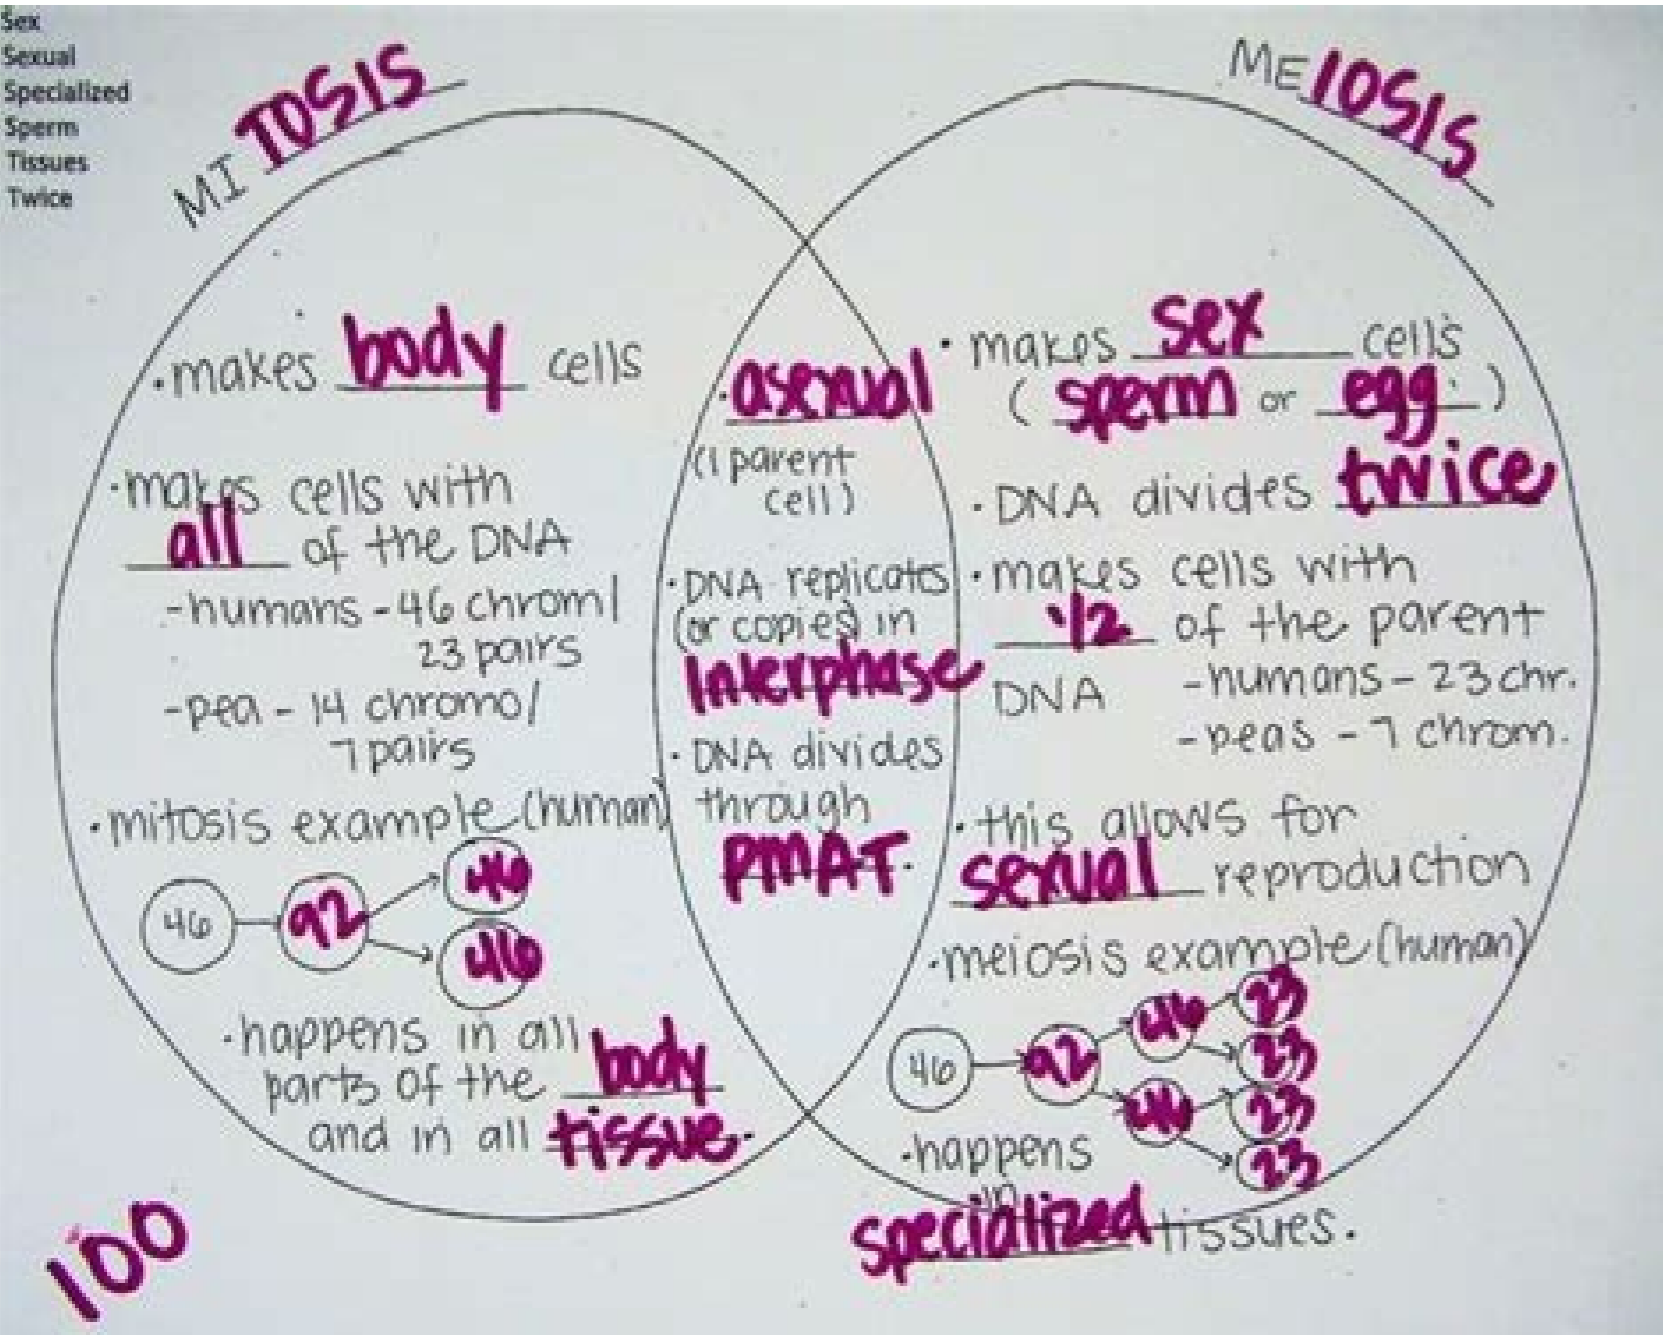 Sex
Sexual
Specialized
Sperm
Tissues
Twice
MITOSIS
MEIOSIS
·makes body cells
·makes cells with
all of the DNA
-humans -46 chrom/
23 pairs
-pea - 14 chromo/
7 pairs
·mitosis example (human)
46
92
46
46
·happens in all
parts of the body
and in all tissue.
·asexual
(1 parent
cell)
·DNA replicates
(or copies) in
Interphase
·DNA divides
through
PMAT.
·makes sex cells
(sperm or egg.)
·DNA divides twice
·makes cells with
1/2 of the parent
DNA -humans - 23 chr.
-peas - 7 chrom.
·this allows for
sexual reproduction
·meiosis example (human)
46
92
46
46
23
23
23
23
·happens
in
specialized tissues.
100